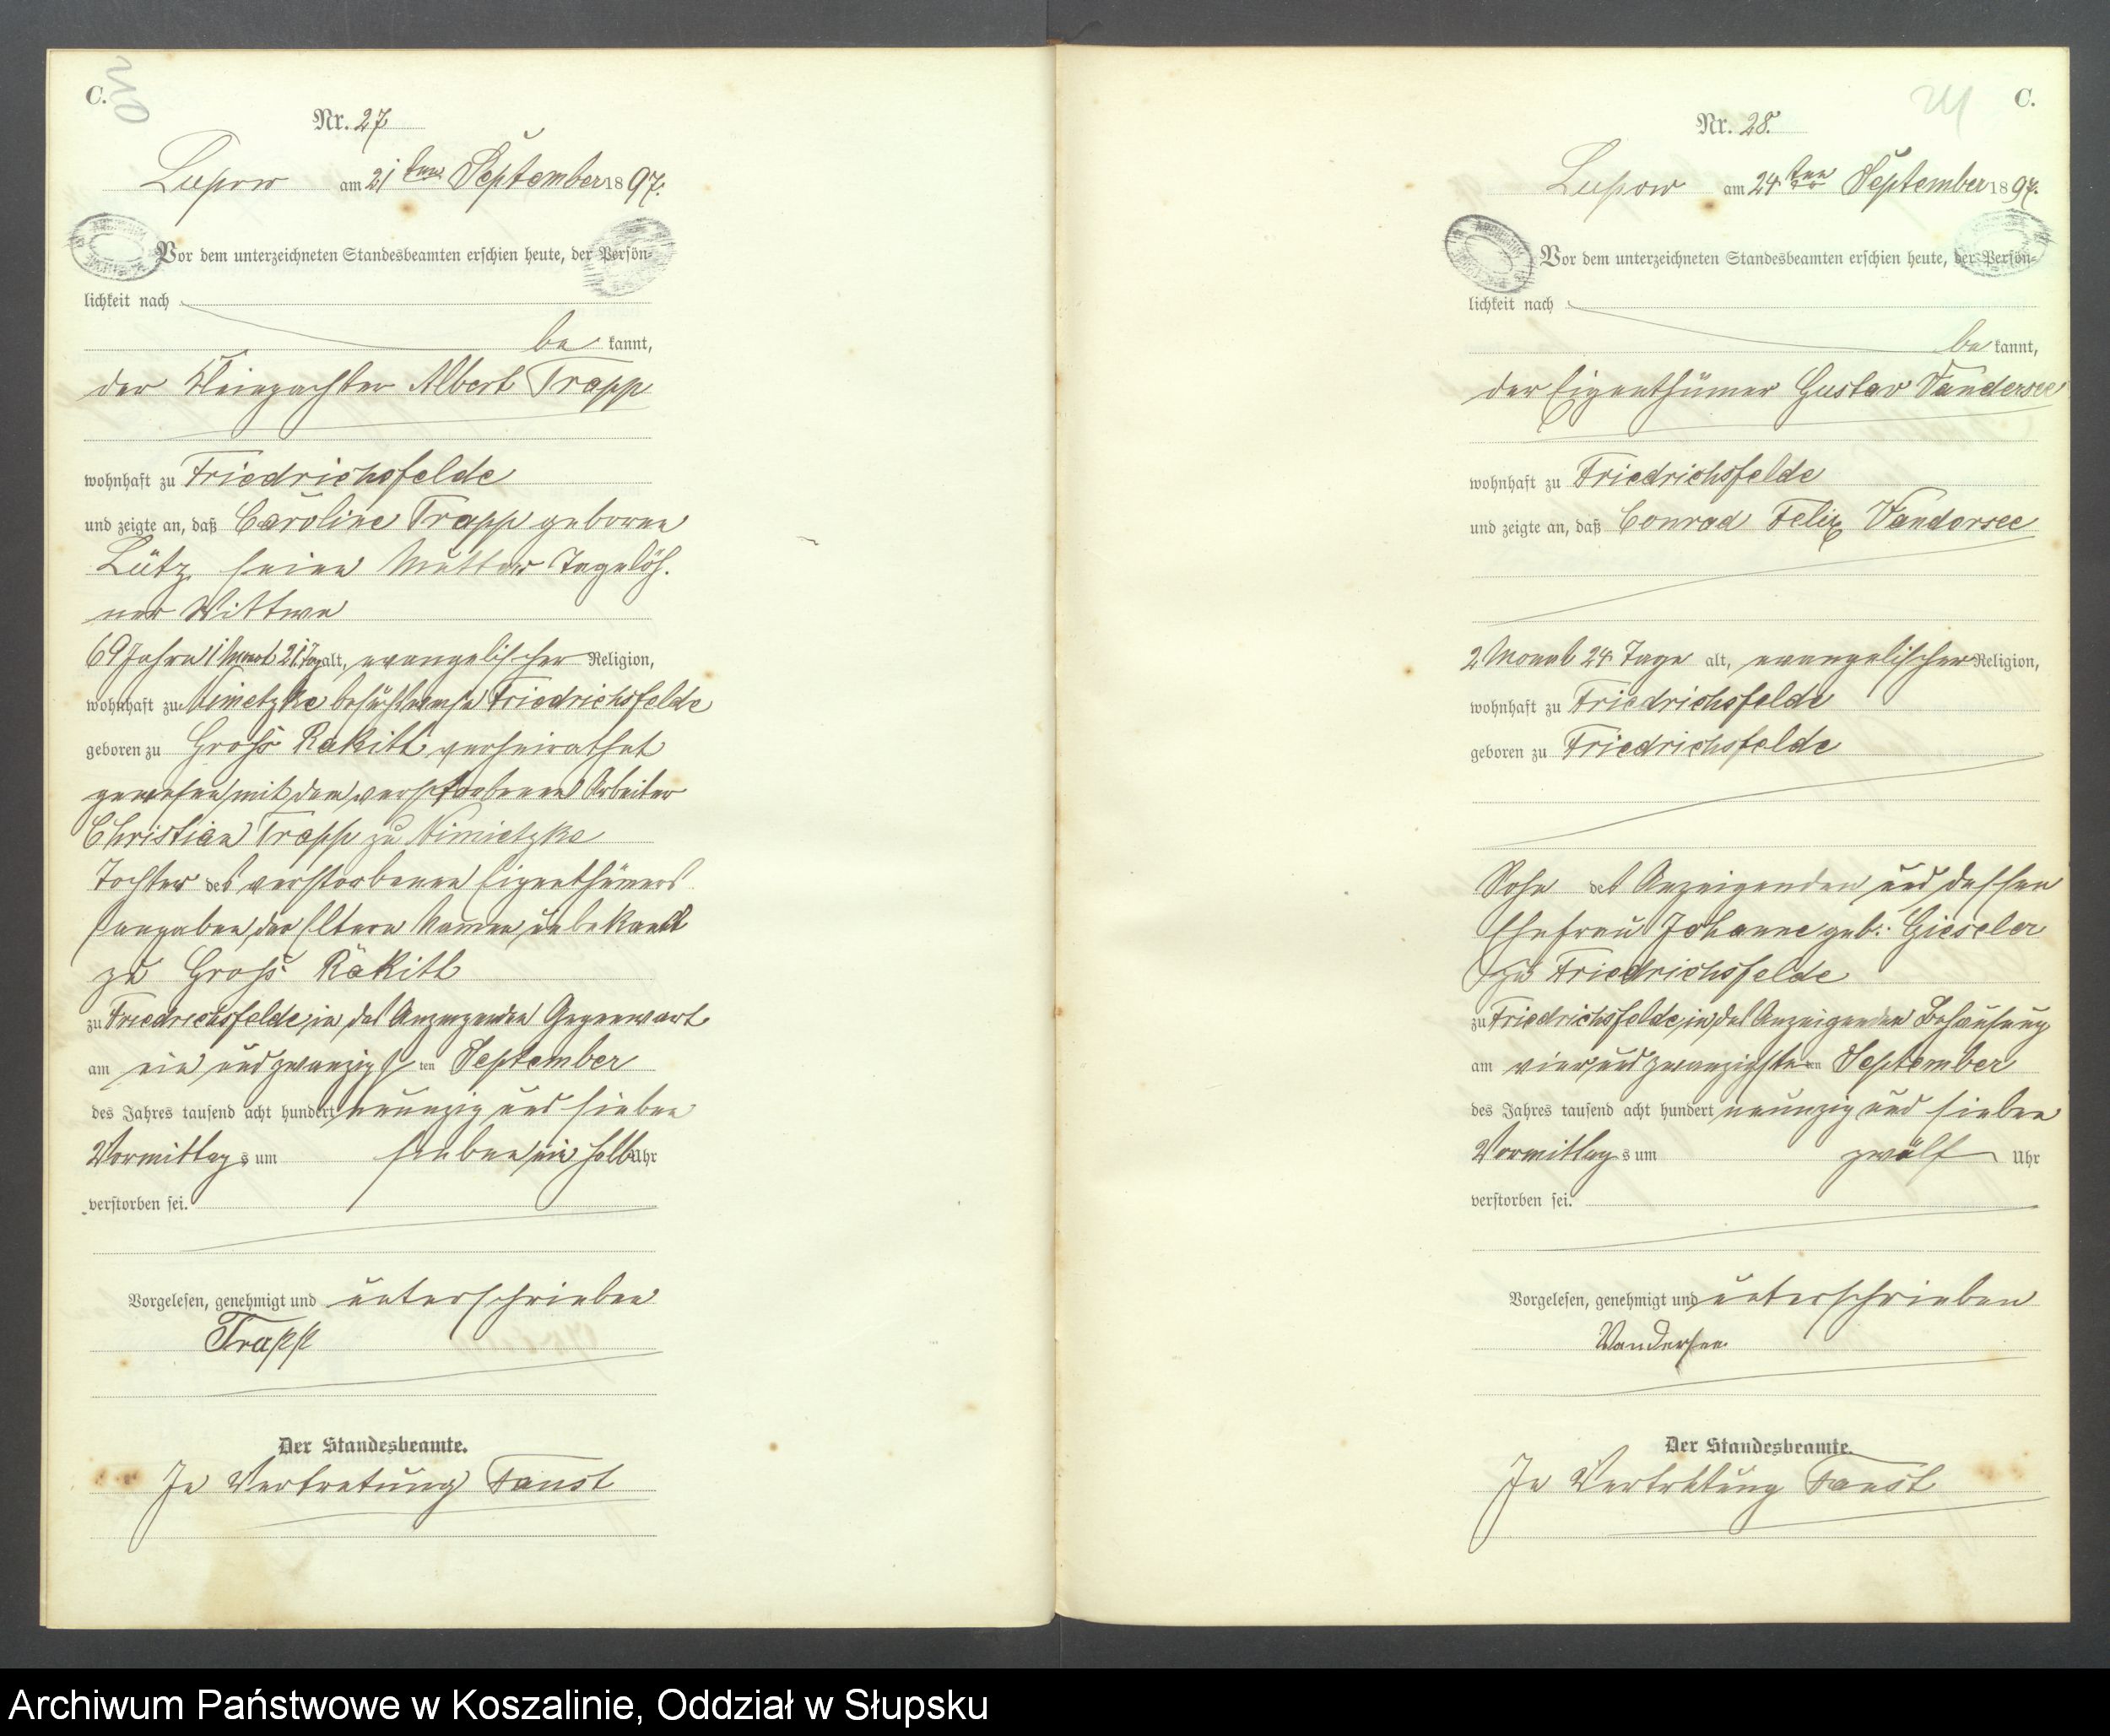 C.
Nr. 27
Lupow am 21ten September 1897.
Vor dem unterzeichneten Standesbeamten erschien heute, der Persön-
lichkeit nach
be kannt,
der Kleinpachter Albert Trapp
wohnhaft zu Friedrichsfelde
und zeigte an, daß Caroline Trapp geborne
Lütz seine Mutter Tagelöh.
ner Wittwe
69 Jahre 1 Monat 21 Tag alt, evangelischer Religion,
wohnhaft zu Nimietzke besuchsweise Friedrichsfelde
geboren zu Groß Rakitt verheirathet
gewesen mit dem verstorbenen Arbeiter
Christian Trapp zu Nimietzke
Tochter des verstorbenen Eigenthümers
angaben der Eltern Namen unbekannt
zu Groß Rakitt
zu Friedrichsfelde, in des Anzeigenden Gegenwart
am ein und zwanzigsten September
des Jahres tausend acht hundert neunzig und sieben
Vormittags um sieben ein halb Uhr
verstorben sei.
Vorgelesen, genehmigt und unterschrieben
Trapp
Der Standesbeamte.
In Vertretung Faust
C.
Nr. 28.
Lupow am 24ten September 1897.
Vor dem unterzeichneten Standesbeamten erschien heute, der Persön-
lichkeit nach
be kannt,
der Eigenthümer Gustav Vandersee
wohnhaft zu Friedrichsfelde
und zeigte an, daß Conrad Felix Vandersee
2 Monat 24 Tage alt, evangelischer Religion,
wohnhaft zu Friedrichsfelde
geboren zu Friedrichsfelde
Sohn des Anzeigenden und dessen
Ehefrau Johanne geb. Gieseler
zu Friedrichsfelde
zu Friedrichsfelde, in des Anzeigenden Behausung
am vier und zwanzigsten September
des Jahres tausend acht hundert neunzig und sieben
Vormittags um zwölf Uhr
verstorben sei.
Vorgelesen, genehmigt und unterschrieben
Vandersee
Der Standesbeamte.
In Vertretung Faust
Archiwum Państwowe w Koszalinie, Oddział w Słupsku